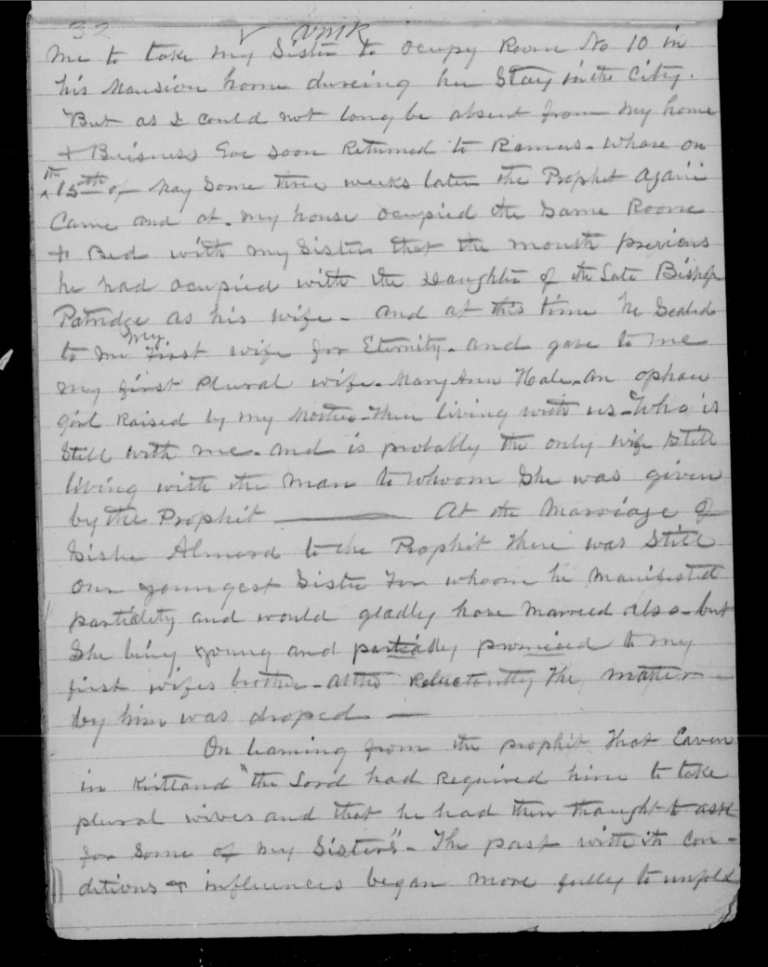 32
me to take my Sister to ocupy Room No 10 in
his Mansion home dureing her Stay in the City.
But as I could not long be absent from my home
& Buisness We soon Returned to Ramus. Whare on
the 15th of May Some three weeks later the Prophet again
Came and at my house ocupied the Same Room
& Bed with my Sister that the month previous
he had ocupied with the Daughter of the Late Bishop
Patridge as his wife - and at this time he Sealed
to me My First wife for Eternity. and gave to me
my first Plural wife. Mary Ann Hale. an ophan
girl Raised by my Mother then living with us - Who is
Still with me. and is probably the only wife Still
living with the Man to whoom She was given
by the Prophit — At the Marriage of
Sister Almera to the Prophit there was Still
our youngest Sister For whoom he manifested
partiality and would gladly have Marreed also - but
She being young and partialley promiced to my
first wifes brother - altho reluctantly the matter
by him was droped —
On learning from the prophit that Eaven
in Kirtland "the Lord had required him to take
plural wives and that he had then thought to ask
for Some of my Sisters" - The past with its con-
ditions & influences began more fully to unfold